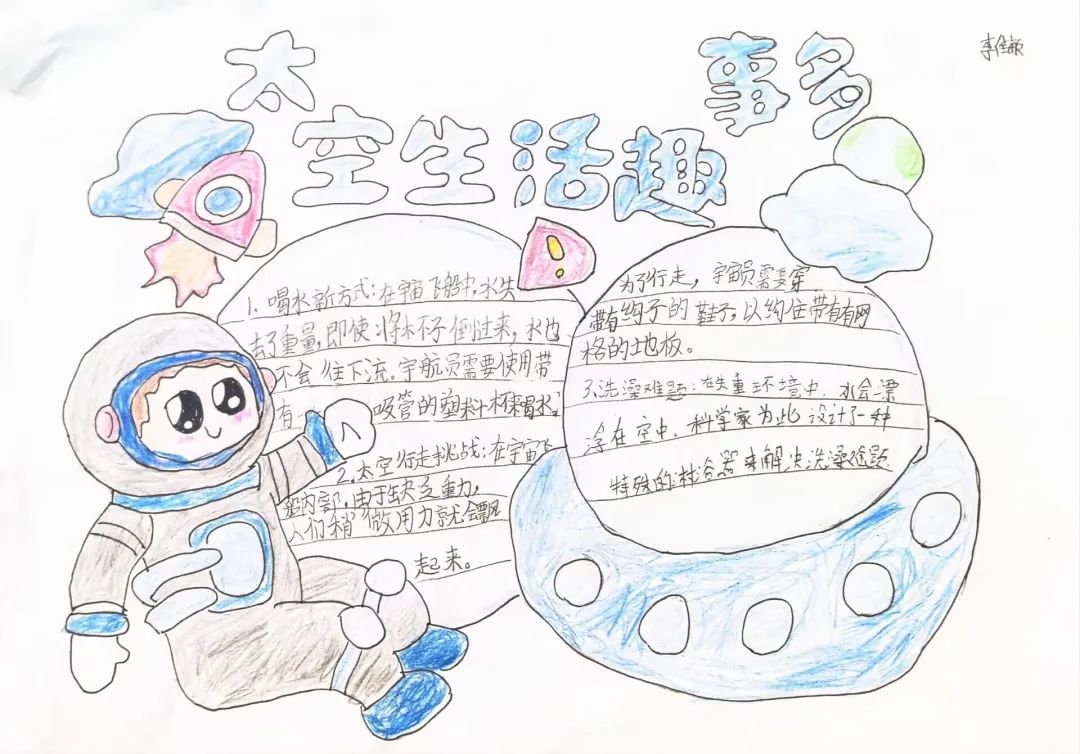 太空生活趣事多
1.喝水新方式:在宇宙飞船中,水失
去了重量,即使将杯子倒过来,水也
不会往下流。宇航员需要使用带
有一 吸管的塑料杯喝水。
2.太空行走挑战:在宇宙飞
船内部,由于缺乏重力,
人们稍微用力就会飘
起来。
为了行走,宇宙员需要穿
带有钩子的鞋子,以钩住带有网
格的地板。
3.洗澡难题:在失重环境中,水会漂
浮在空中,科学家为此设计了一种
特殊的 浴器来解决洗澡难题